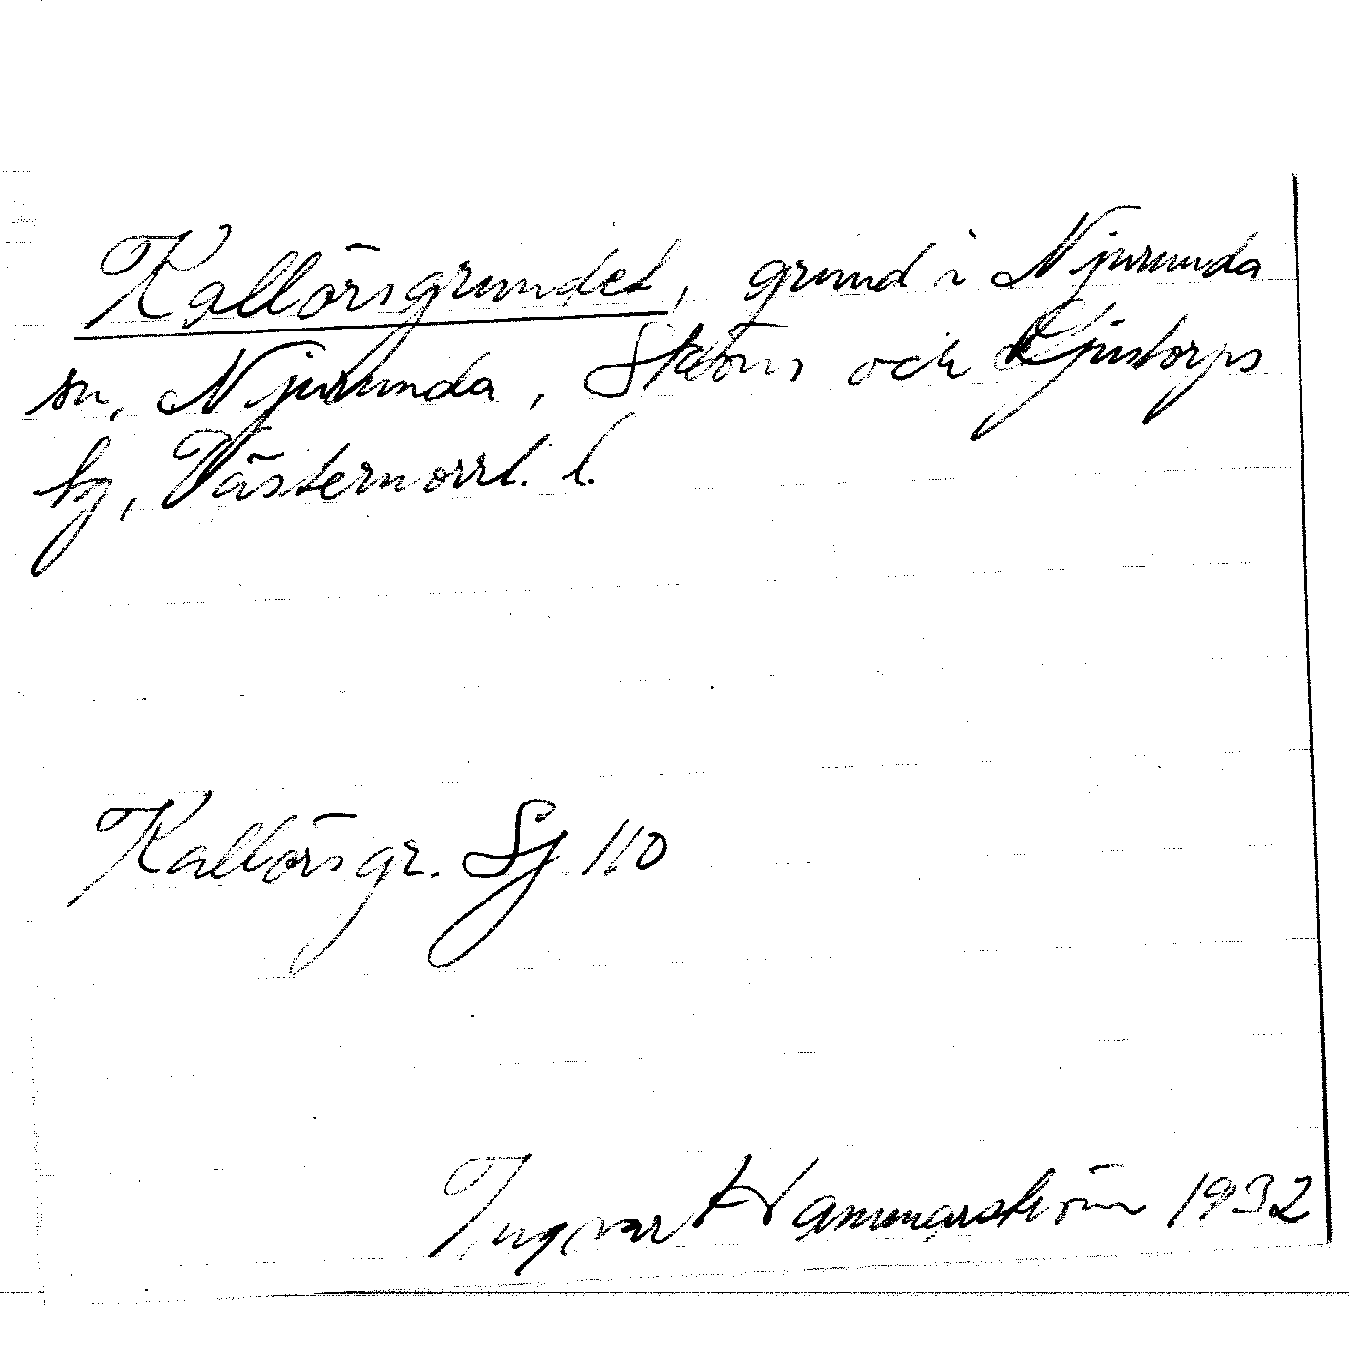 Kallörsgrundet, grund i Njurunda
sn, Njurunda, Sköns och Ljustorps
tg, Västernorrl. l.
Kallörsgr. Sj 110
Ingvar Hammarström 1932